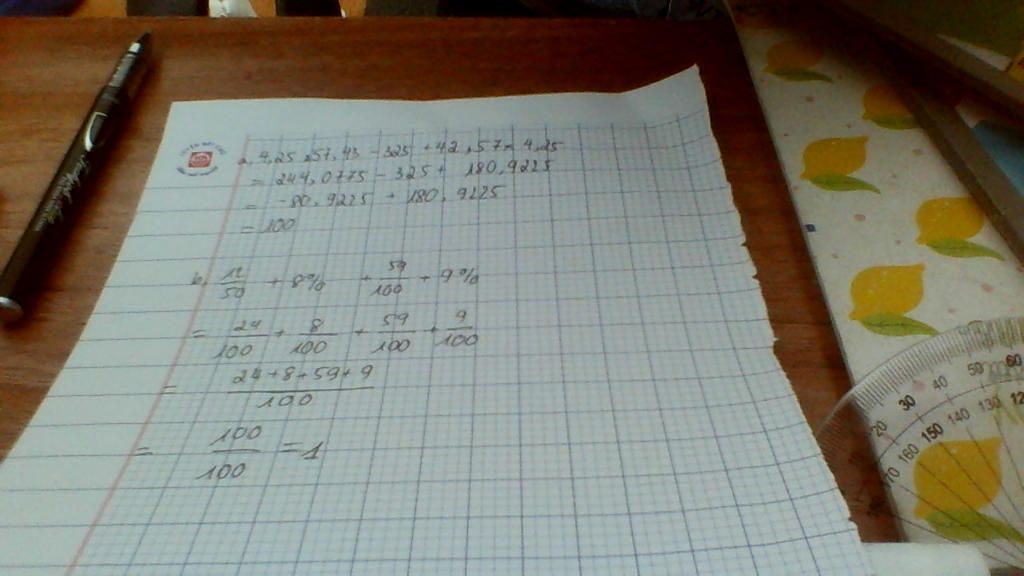 a, 4,25 x 57,43 - 325 + 42,57 x 4,25
= 244,0775 - 325 + 180,9225
= -80,9225 + 180,9225
= 100
b, 12/50 + 8% + 59/100 + 9%
= 24/100 + 8/100 + 59/100 + 9/100
= 24+8+59+9/100
= 100/100 = 1
20 30 40 50 60
170 160 150 140 130 120